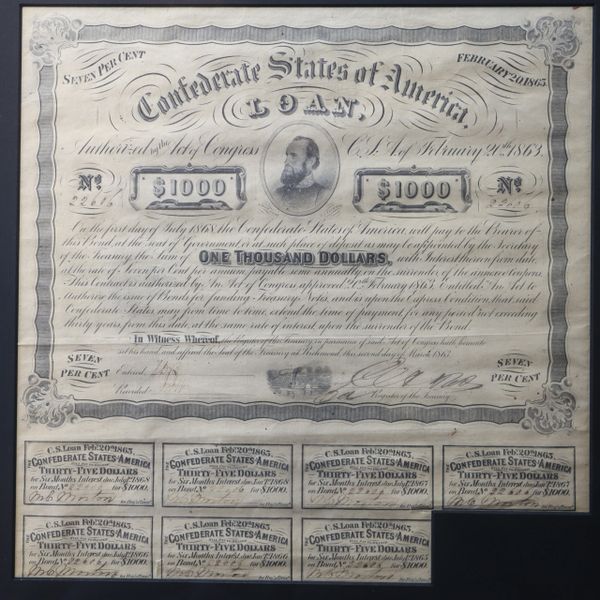 SEVEN PER CENT
FEBRUARY 20, 1863.
Confederate States of America
LOAN,
Authorized by the Act of Congress C.S.A. of February 20th 1863.
No. No.
22606
$1000 $1000
On the first day of July 1868 the Confederate States of America will pay to the Bearer of
this Bond, at the seat of Government or at such place of deposit as may be appointed by the Secretary
of the Treasury, the Sum of ONE THOUSAND DOLLARS, with Interest thereon from date
at the rate of Seven per Cent per annum, payable semi-annually on the surrender of the annexed Coupons.
This Contract is authorized by An Act of Congress approved 20th February 1863, Entitled "An Act to
Authorize the issue of Bonds for funding Treasury Notes, and is upon the Express Condition, that said
Confederate States may from time to time, extend the time of payment for any period not exceeding
thirty years from this date at the same rate of interest upon the surrender of the Bond.
In Witness Whereof, the Register of the Treasury, in pursuance of said Act of Congress, hath hereunto
set his hand and affixed the Seal of the Treasury, at Richmond, this second day of March 1863.
SEVEN PER CENT
Entered
Recorded
Register of the Treasury.
SEVEN PER CENT
C.S. Loan Feby. 20th 1863. C.S. Loan Feby. 20th 1863. C.S. Loan Feby. 20th 1863. C.S. Loan Feby. 20th 1863.
THE CONFEDERATE STATES OF AMERICA THE CONFEDERATE STATES OF AMERICA THE CONFEDERATE STATES OF AMERICA THE CONFEDERATE STATES OF AMERICA
THIRTY-FIVE DOLLARS THIRTY-FIVE DOLLARS THIRTY-FIVE DOLLARS THIRTY-FIVE DOLLARS
for Six Months Interest due July 1st 1868 for Six Months Interest due Jany 1st 1868 for Six Months Interest due July 1st 1867 for Six Months Interest due Jany 1st 1867
on Bond, No. 22606 for $1000. on Bond, No. 22606 for $1000. on Bond, No. 22606 for $1000. on Bond, No. 22606 for $1000.
C.S. Loan Feby. 20th 1863. C.S. Loan Feby. 20th 1863. C.S. Loan Feby. 20th 1863.
THE CONFEDERATE STATES OF AMERICA THE CONFEDERATE STATES OF AMERICA THE CONFEDERATE STATES OF AMERICA
THIRTY-FIVE DOLLARS THIRTY-FIVE DOLLARS THIRTY-FIVE DOLLARS
for Six Months Interest due July 1st 1866 for Six Months Interest due Jany 1st 1866 for Six Months Interest due July 1st 1865
on Bond, No. 22606 for $1000. on Bond, No. 22606 for $1000. on Bond, No. 22606 for $1000.